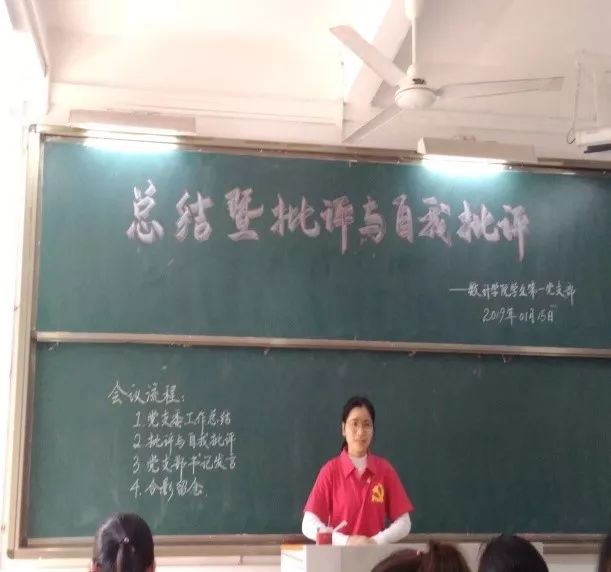 总结暨批评与自我批评
——数计学院学生第一党支部
2019年01月15日
会议流程：
1.党支委工作总结
2.批评与自我批评
3.党支部书记发言
4.合影留念.